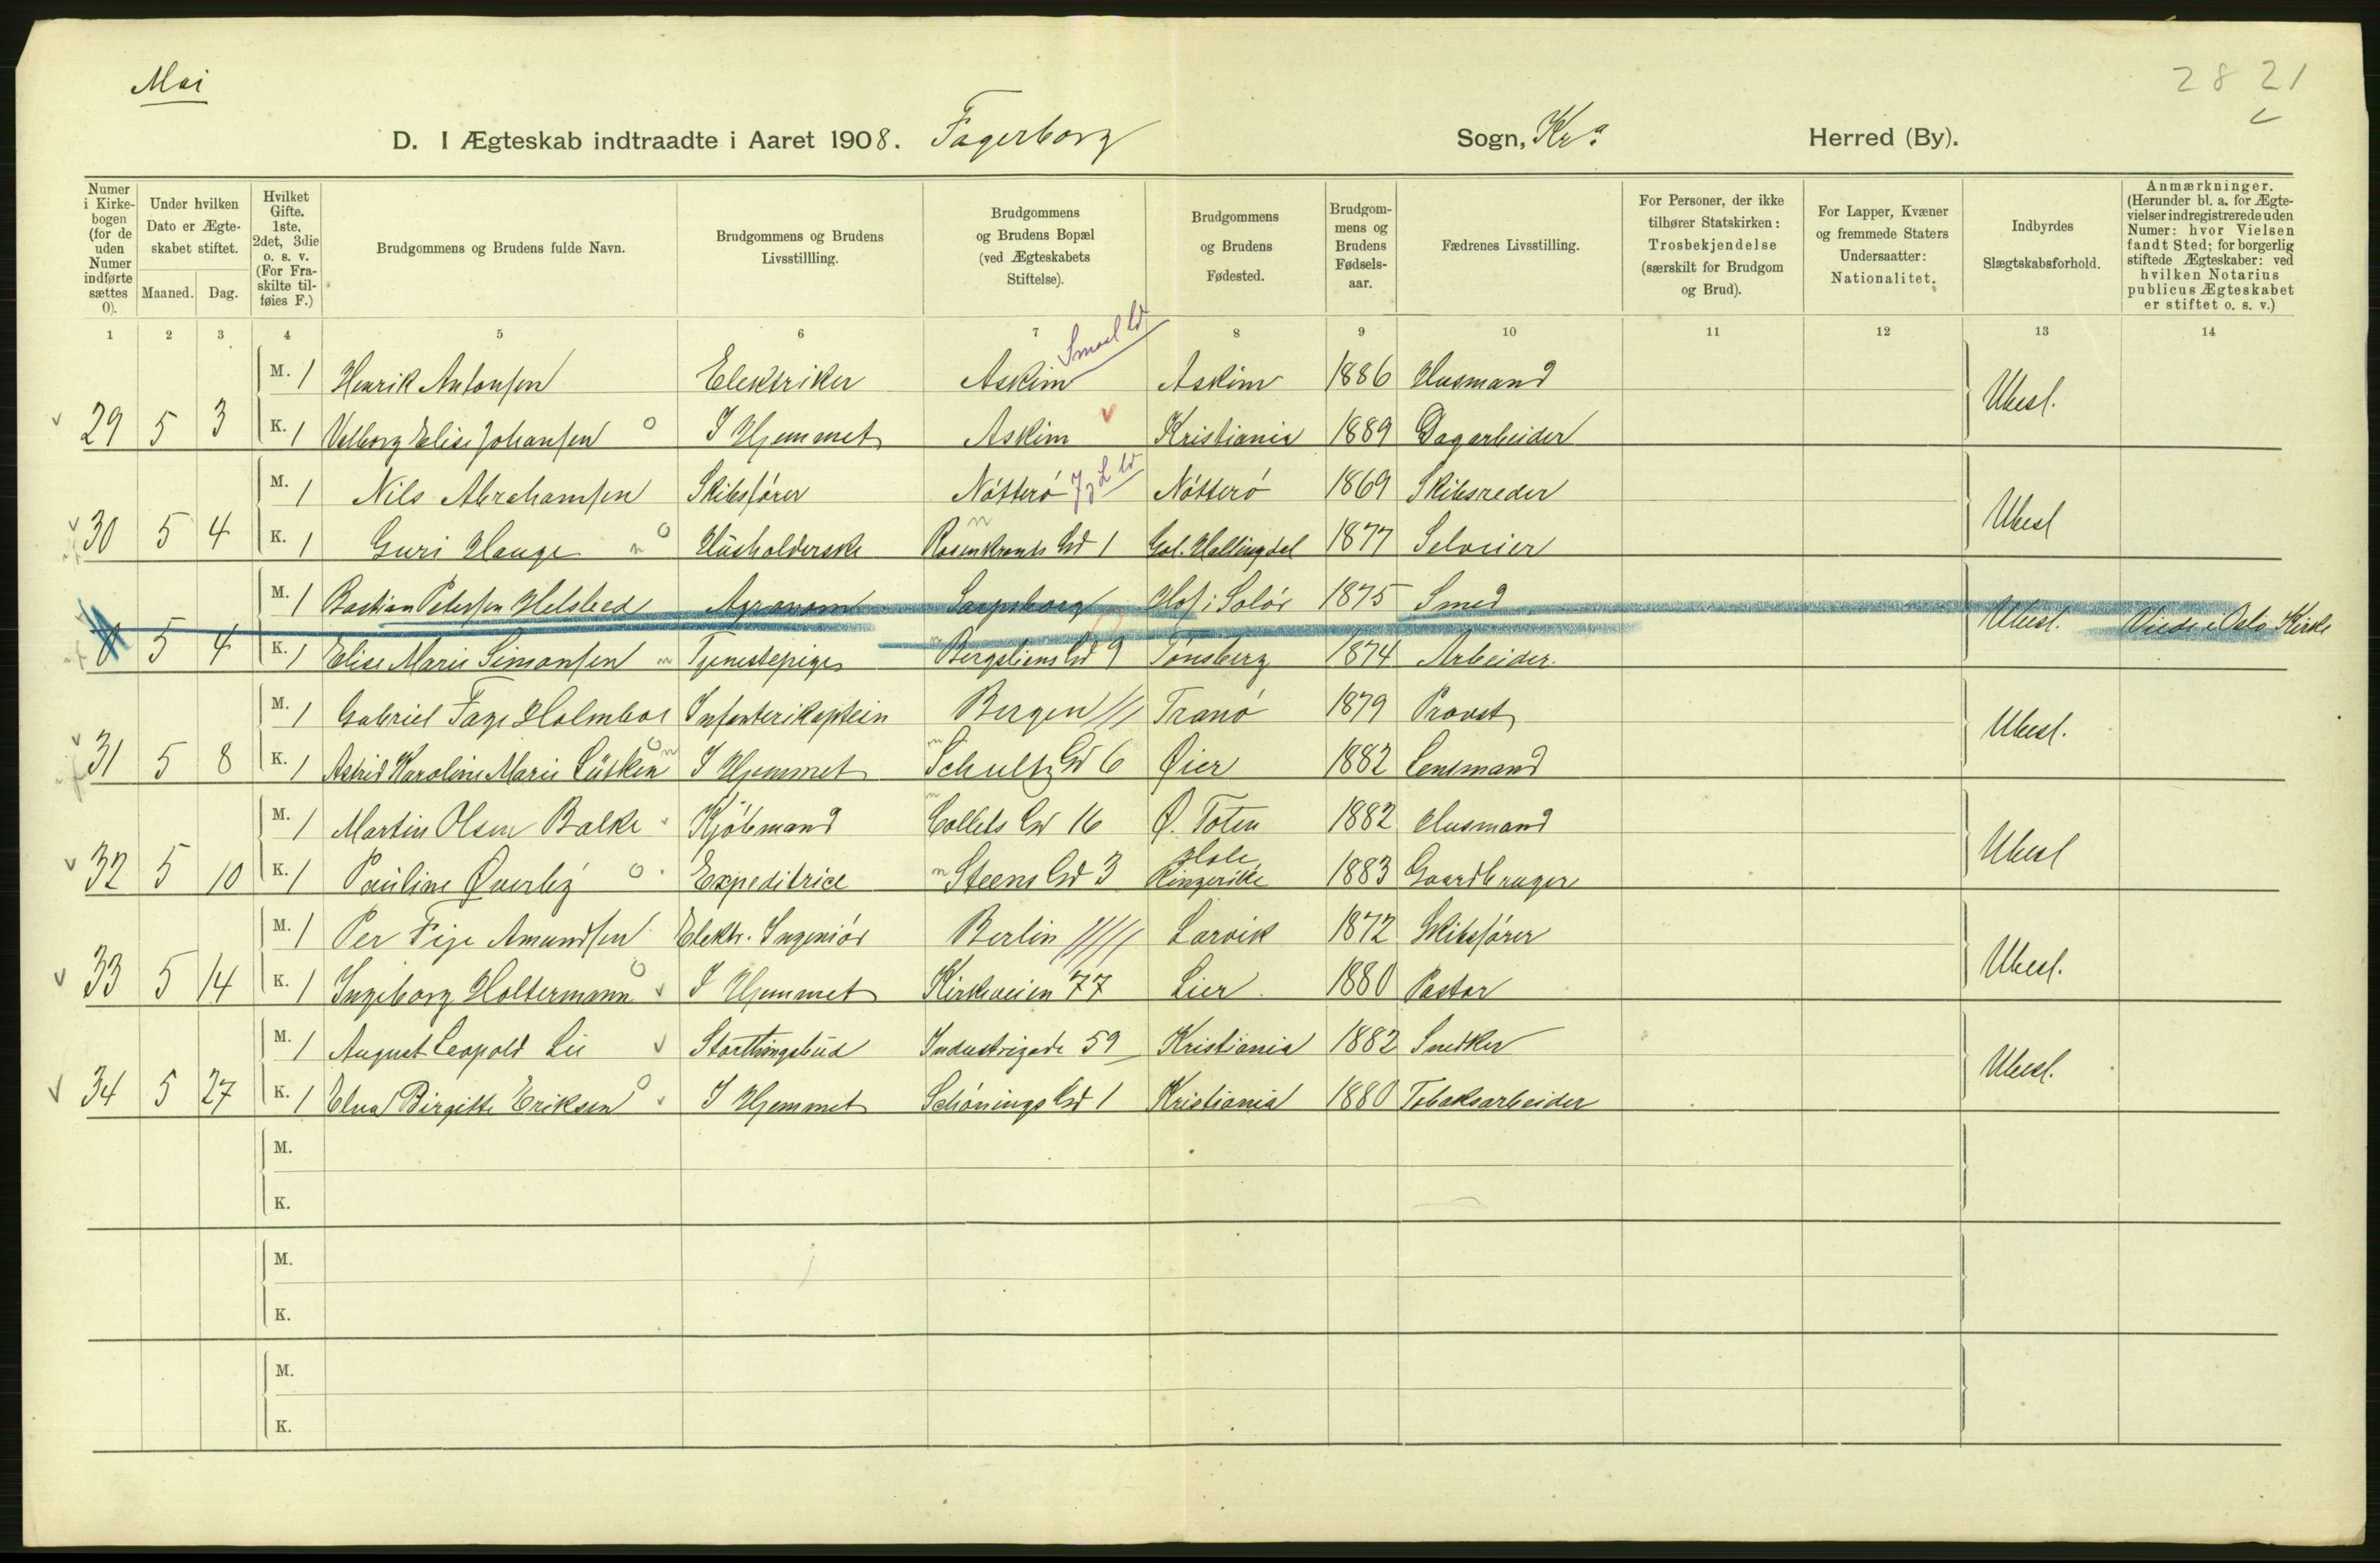 Mai
28 21
D. I Ægteskab indtraadte i Aaret 1908. Fagerborg Sogn, Kra. Herred (By).
Numer i Kirke-bogen (for de uden Numer indførte sættes 0).
Under hvilken Dato er Ægte-skabet stiftet.
Maaned. Dag.
Hvilket Gifte. 1ste, 2det, 3die o. s. v. (For Fra-skilte til-føies F.)
Brudgommens og Brudens fulde Navn.
Brudgommens og Brudens Livsstillling.
Brudgommens og Brudens Bopæl (ved Ægteskabets Stiftelse).
Brudgommens og Brudens Fødested.
Brudgom-mens og Brudens Fødsels-aar.
Fædrenes Livsstilling.
For Personer, der ikke tilhører Statskirken: Trosbekjendelse (særskilt for Brudgom og Brud).
For Lapper, Kvæner og fremmede Staters Undersaatter: Nationalitet.
Indbyrdes Slægtskabsforhold.
Anmærkninger. (Herunder bl. a. for Ægte-vielser indregistrerede uden Numer: hvor Vielsen fandt Sted; for borgerlig stiftede Ægteskaber: ved hvilken Notarius publicus Ægteskabet er stiftet o. s. v.)
1 2 3 4 5 6 7 8 9 10 11 12 13 14
M. 1 Henrik Antonsen Elektriker Askim Askim 1886 Husmand
29 5 3 K. 1 Valborg Elise Johansen I Hjemmet Askim Kristiania 1889 Dagarbeider Ubesl.
M. 1 Nils Abrahamsen Skibsfører Nøtterø Nøtterø 1869 Skibsreder
30 5 4 K. 1 Guri Hauge Husholderske Rosenkrants Gd 1 Gol. Hallingdal 1877 Selveier Ubesl
M. 1 Bastian Petersen Agronom Sarpsborg Hof i Solør 1875 Smed
0 5 4 K. 1 Elise Marie Simonsen Tjenestepige Bergsliens Gd 9 Tønsberg 1874 Arbeider. Ubesl. Viede i Oslo Kirke
M. 1 Gabriel Fage Holmboe Infanterikaptein Bergen Tranø 1879 Provst
31 5 8 K. 1 Astrid Karoline Marie Lütken I Hjemmet Schultz Gd 6 Øier 1882 Lensmand Ubesl.
M. 1 Martin Olsen Balke Kjøbmand Collets Gd 16 Ø. Toten 1882 Husmand
32 5 10 K. 1 Pauline Øverby Expeditrice Steens Gd 3 Hole Ringerike 1883 Gaardbruger Ubesl
M. 1 Per Feje Amundsen Elektr. Ingeniør Berlin Larvik 1872 Skibsfører
33 5 14 K. 1 Ingeborg Holtermann I Hjemmet Kirkeveien 77 Lier 1880 Pastor Ubesl.
M. 1 August Leopold Lie Storthingsbud Industrigade 59 Kristiania 1882 Snedker
34 5 27 K. 1 Elna Birgitte Eriksen I Hjemmet Schønings Gd 1 Kristiania 1880 Tobaksarbeider Ubesl.
M.
K.
M.
K.
M.
K.